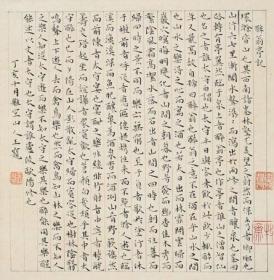 醉翁亭記
環滁皆山也其西南諸峯林壑尤美望之蔚然而深秀者琅琊也
山行六七里漸聞水聲潺潺而瀉出於兩峯之間者釀泉也峯回
路轉有亭翼然臨於泉上者醉翁亭也作亭者誰山之僧智仙
也名之者誰太守自謂也太守與客來飲於此飲少輒醉而
年又最高故自號曰醉翁也醉翁之意不在酒在乎山水之間
也山水之樂得之心而寓之酒也若夫日出而林霏開雲歸而
巖穴暝晦明變化者山間之朝暮也野芳發而幽香佳木秀而
繁陰風霜高潔水落而石出者山間之四時也朝而往暮而
歸四時之景不同而樂亦無窮也至于負者歌于塗行者休
于樹前者呼後者應傴僂提攜往來而不絕者滁人遊也臨
溪而漁溪深而魚肥釀泉為酒泉香而酒洌山肴野蔌雜然
而前陳者太守宴也宴酣之樂非絲非竹射者中
者太守醉也已而夕陽在山人影散亂太守歸而賓客從也樹林陰翳
鳴聲上下遊人去而禽鳥樂也然而禽鳥知山林之樂而不知人
之樂人知從太守遊而樂而不知太守之樂其樂也醉能同其樂醒
能述以文者太守也太守謂誰廬陵歐陽脩也
丁亥十月山人王寵